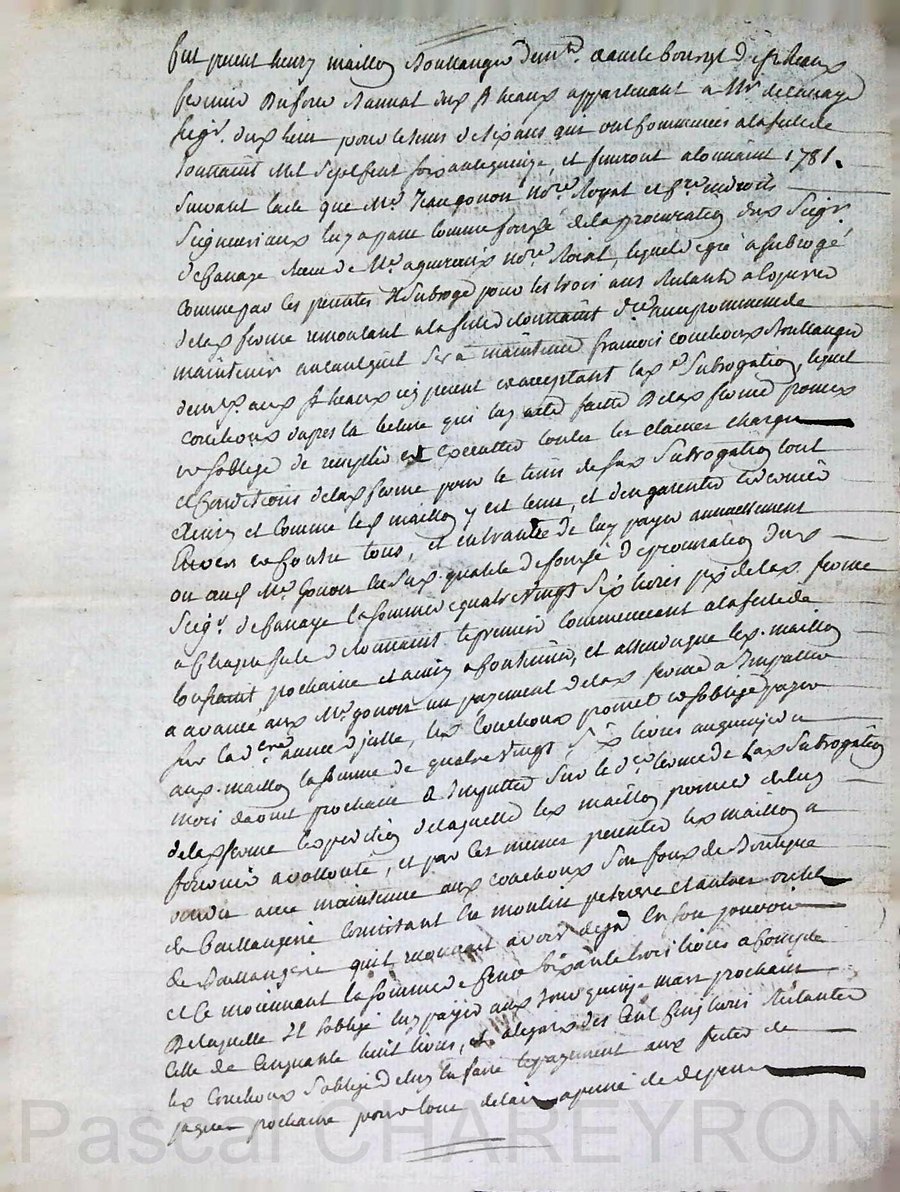 fut present henry maillon Boullanger dem.t a la ville bourg d'ej. St heaux
fermier du four Bannal dud St heaux appartenant a Mr de banage
seigr. dud lieu pour le tems de six ans qui ont commencés a la fete de
toussaint mil sept cent soixante quinze, et finiront a la meme 1781.
Suivant l'acte que Me. Jean gonon nore. Royal et gre. en droits
Seigneuriaux luy a passé comme fondé de la procuration dud Seigr.
de Banage Recu de Me. aguiraud nore. Roial, lequel de gré a subrogé
comme par ces presentes Il subroge pour les trois ans Restants a loyer
de lad ferme remontant a la fete de toussaint dre. avec promesse de
maintenir au
maintenüe françois couchoux Boullanger
dem.t aud St heaux icy present et acceptant lad. Subrogation, lequel
couchoux d'apres la lecture qui luy a eté faitte de lad ferme promet
et s'oblige de remplir et executter toutes les clauses charges
et conditions de lad ferme pour le tems de sad Subrogation tout
ainsi et comme led maillon y est tenu, et d'en garentir led
Envers et Contre tous, et en outre de luy payer annuellement
ou aud Me. Gonon en sad qualité de fondé de procuration dud
Seigr. de Banage la somme de quatre vingt Six livres prix de lad. ferme
a Chaque fete de toussaint le premier commencant a la fete de
toussaint prochaine et ainsi a Continuer, et attendu que led. maillon
a avancé aud Me. gonon un payement de lad ferme a Imputter
sur la dre. année d'icelle, led couchoux promet et s'oblige payer
aud. maillon la somme de quatre vingt Six livres au quinze du
mois d'aout prochain a Imputter sur le dre. terme de Lad Subrogation
de lad ferme l'expedition de laquelle led maillon promet de luy
fournir a vollonté, et par ces memes presentes led maillon a
vendu avec maintenüe aud couchoux Son fond de Boutique
de Boullangerie Consistant en moulin petriere et autres outils
de Boullangerie qu'il reconnait avoir deja En son pouvoir
et ce moiennant la somme de Cent soixante trois livres a compte
de laquelle Il s'oblige luy payer aud Jour quinze mars prochain
Celle de Cinquante huit livres, et a l'egard des Cent Cinq livres Restantes
led Couchoux s'oblige de luy En faire le payement aux fetes de
paques prochaine pour tout delai a peine de depens
Pascal CHAREYRON